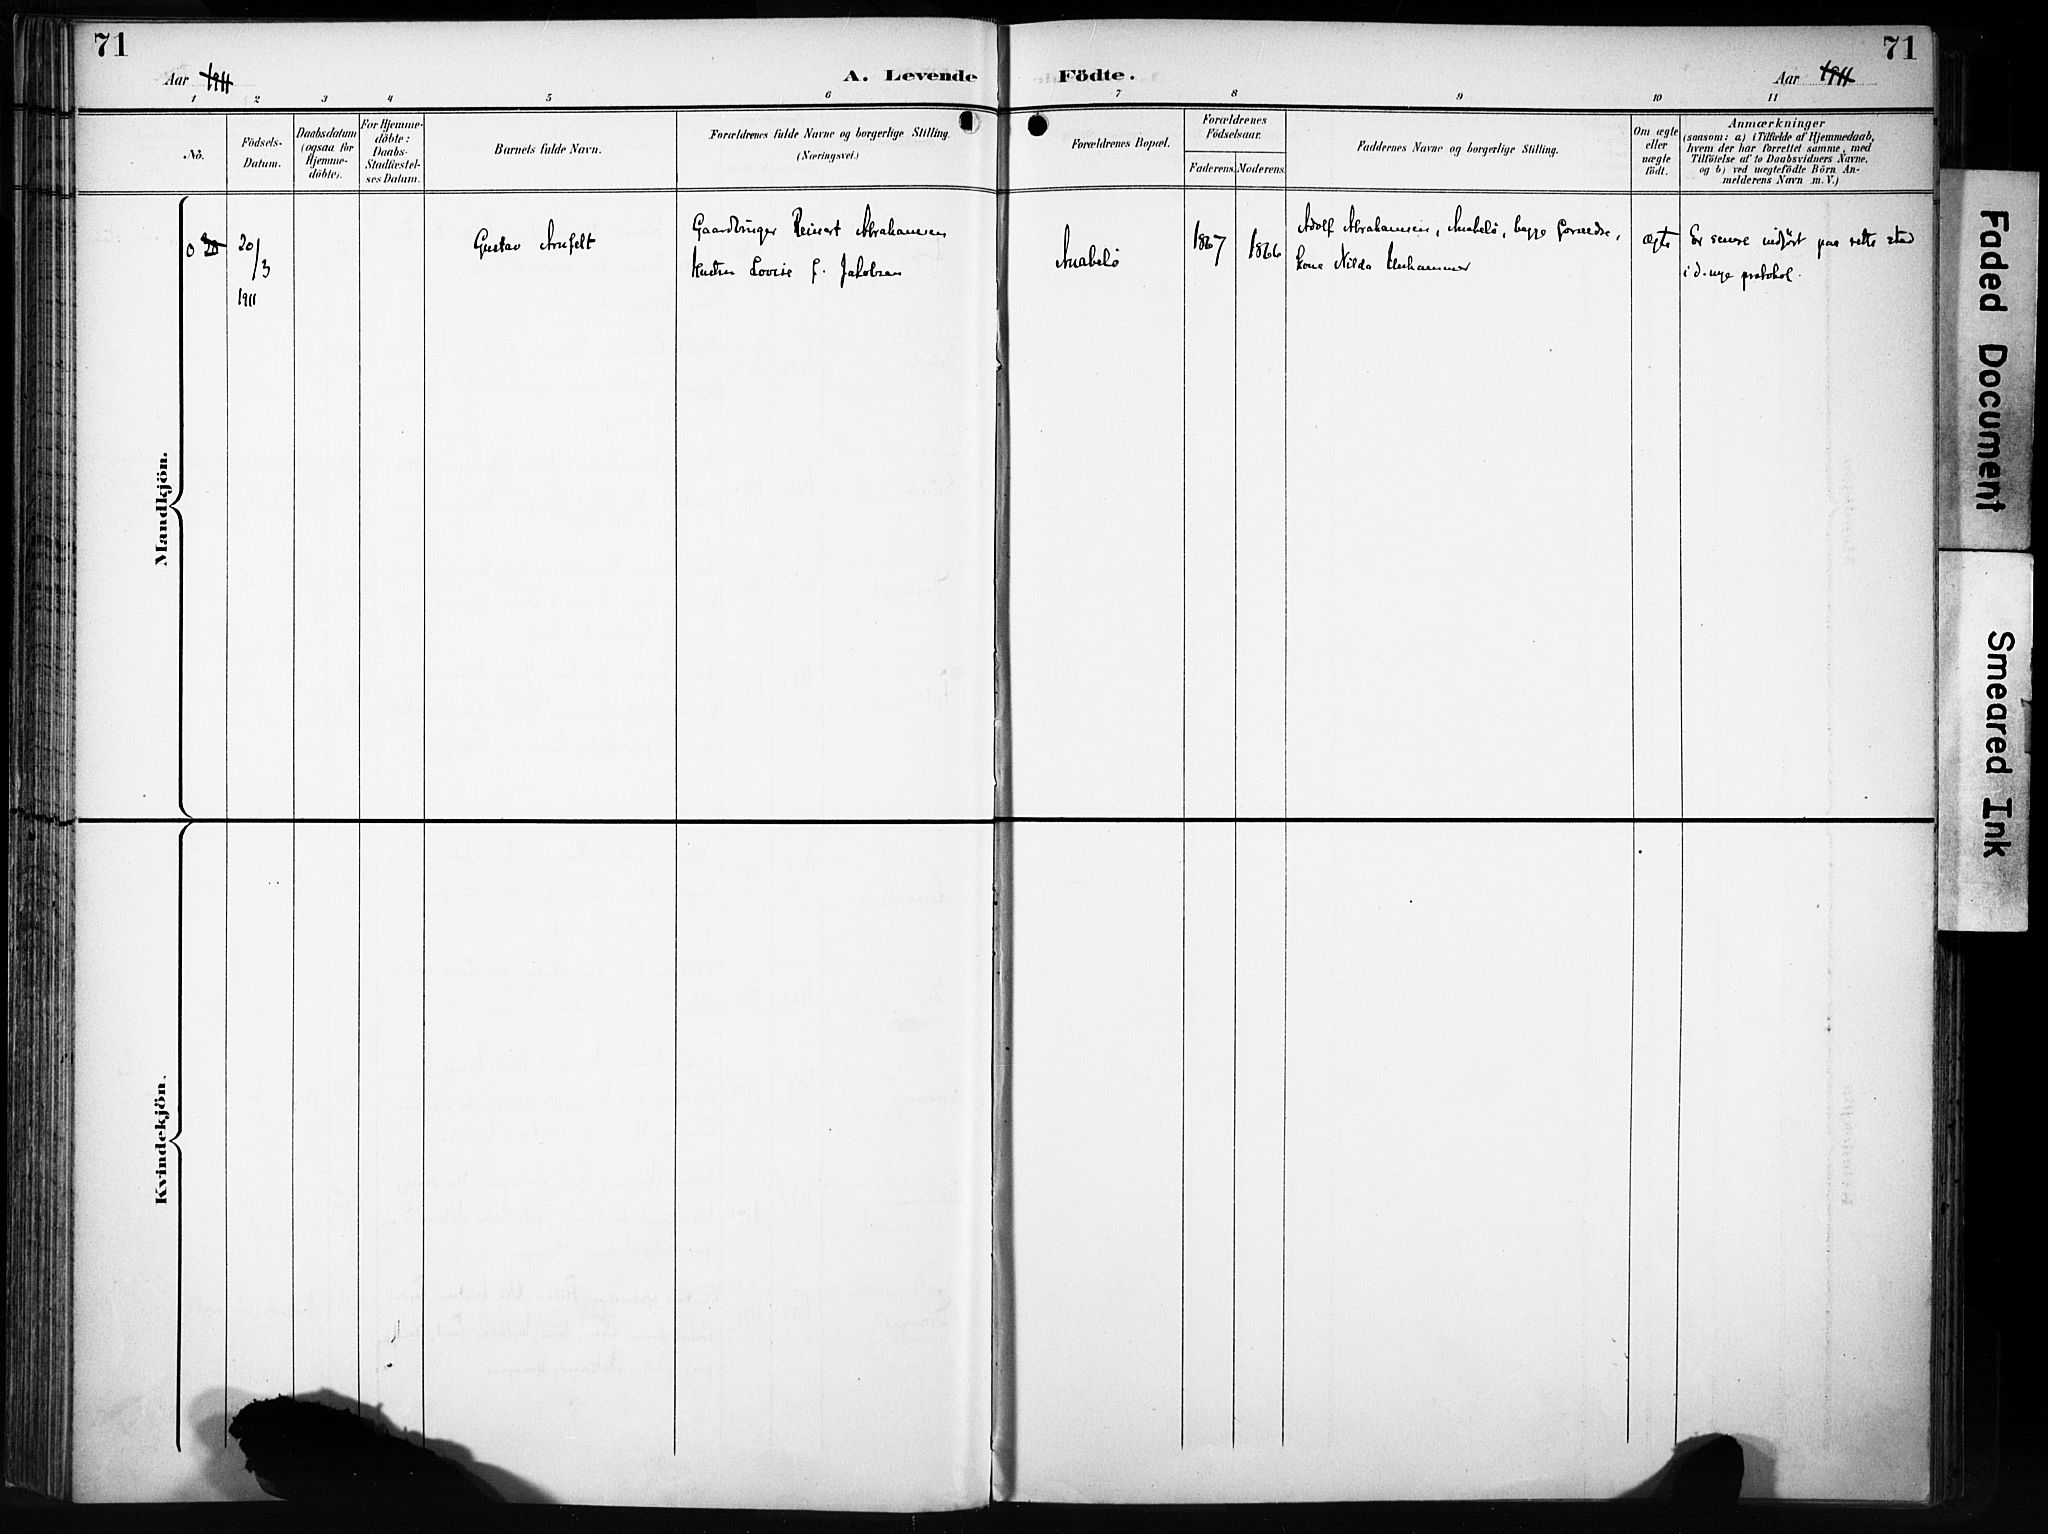 71
71
Aar 1911
A. Levende
Födte.
Aar 1911
1 2 3 4 5 6 7 8 9 10 11
No.
Födsels-
Datum.
Daabsdatum
(ogsaa for
Hjemme-
döbte).
For Hjemme-
döbte:
Daabs-
Stadfæstel-
ses Datum.
Barnets fulde Navn.
Forældrenes fulde Navne og borgerlige Stilling.
(Næringsvei.)
Forældrenes Bopæl.
Forældrenes
Födselsaar.
Faderens. Moderens.
Faddernes Navne og borgerlige Stilling.
Om ægte
eller
uægte
födt.
Anmærkninger
(saasom: a) i Tilfælde af Hjemmedaab,
hvem der har forrettet samme, med
Tilföielse af to Daabsvidners Navne,
og b) ved uægtefödte Börn An-
melderens Navn m. V.)
Mandkjön.
0
20/3
1911
Gustav
Gaardbruger Reinert Abrahamsen
Hustru Lovise f. Jakobsen
1867
1866
Adolf Abrahamsen, begge forældre,
kone
ægte
Er senere indført paa rette sted
i d. nye protokol.
Kvindekjön.
Faded Document
Smeared Ink